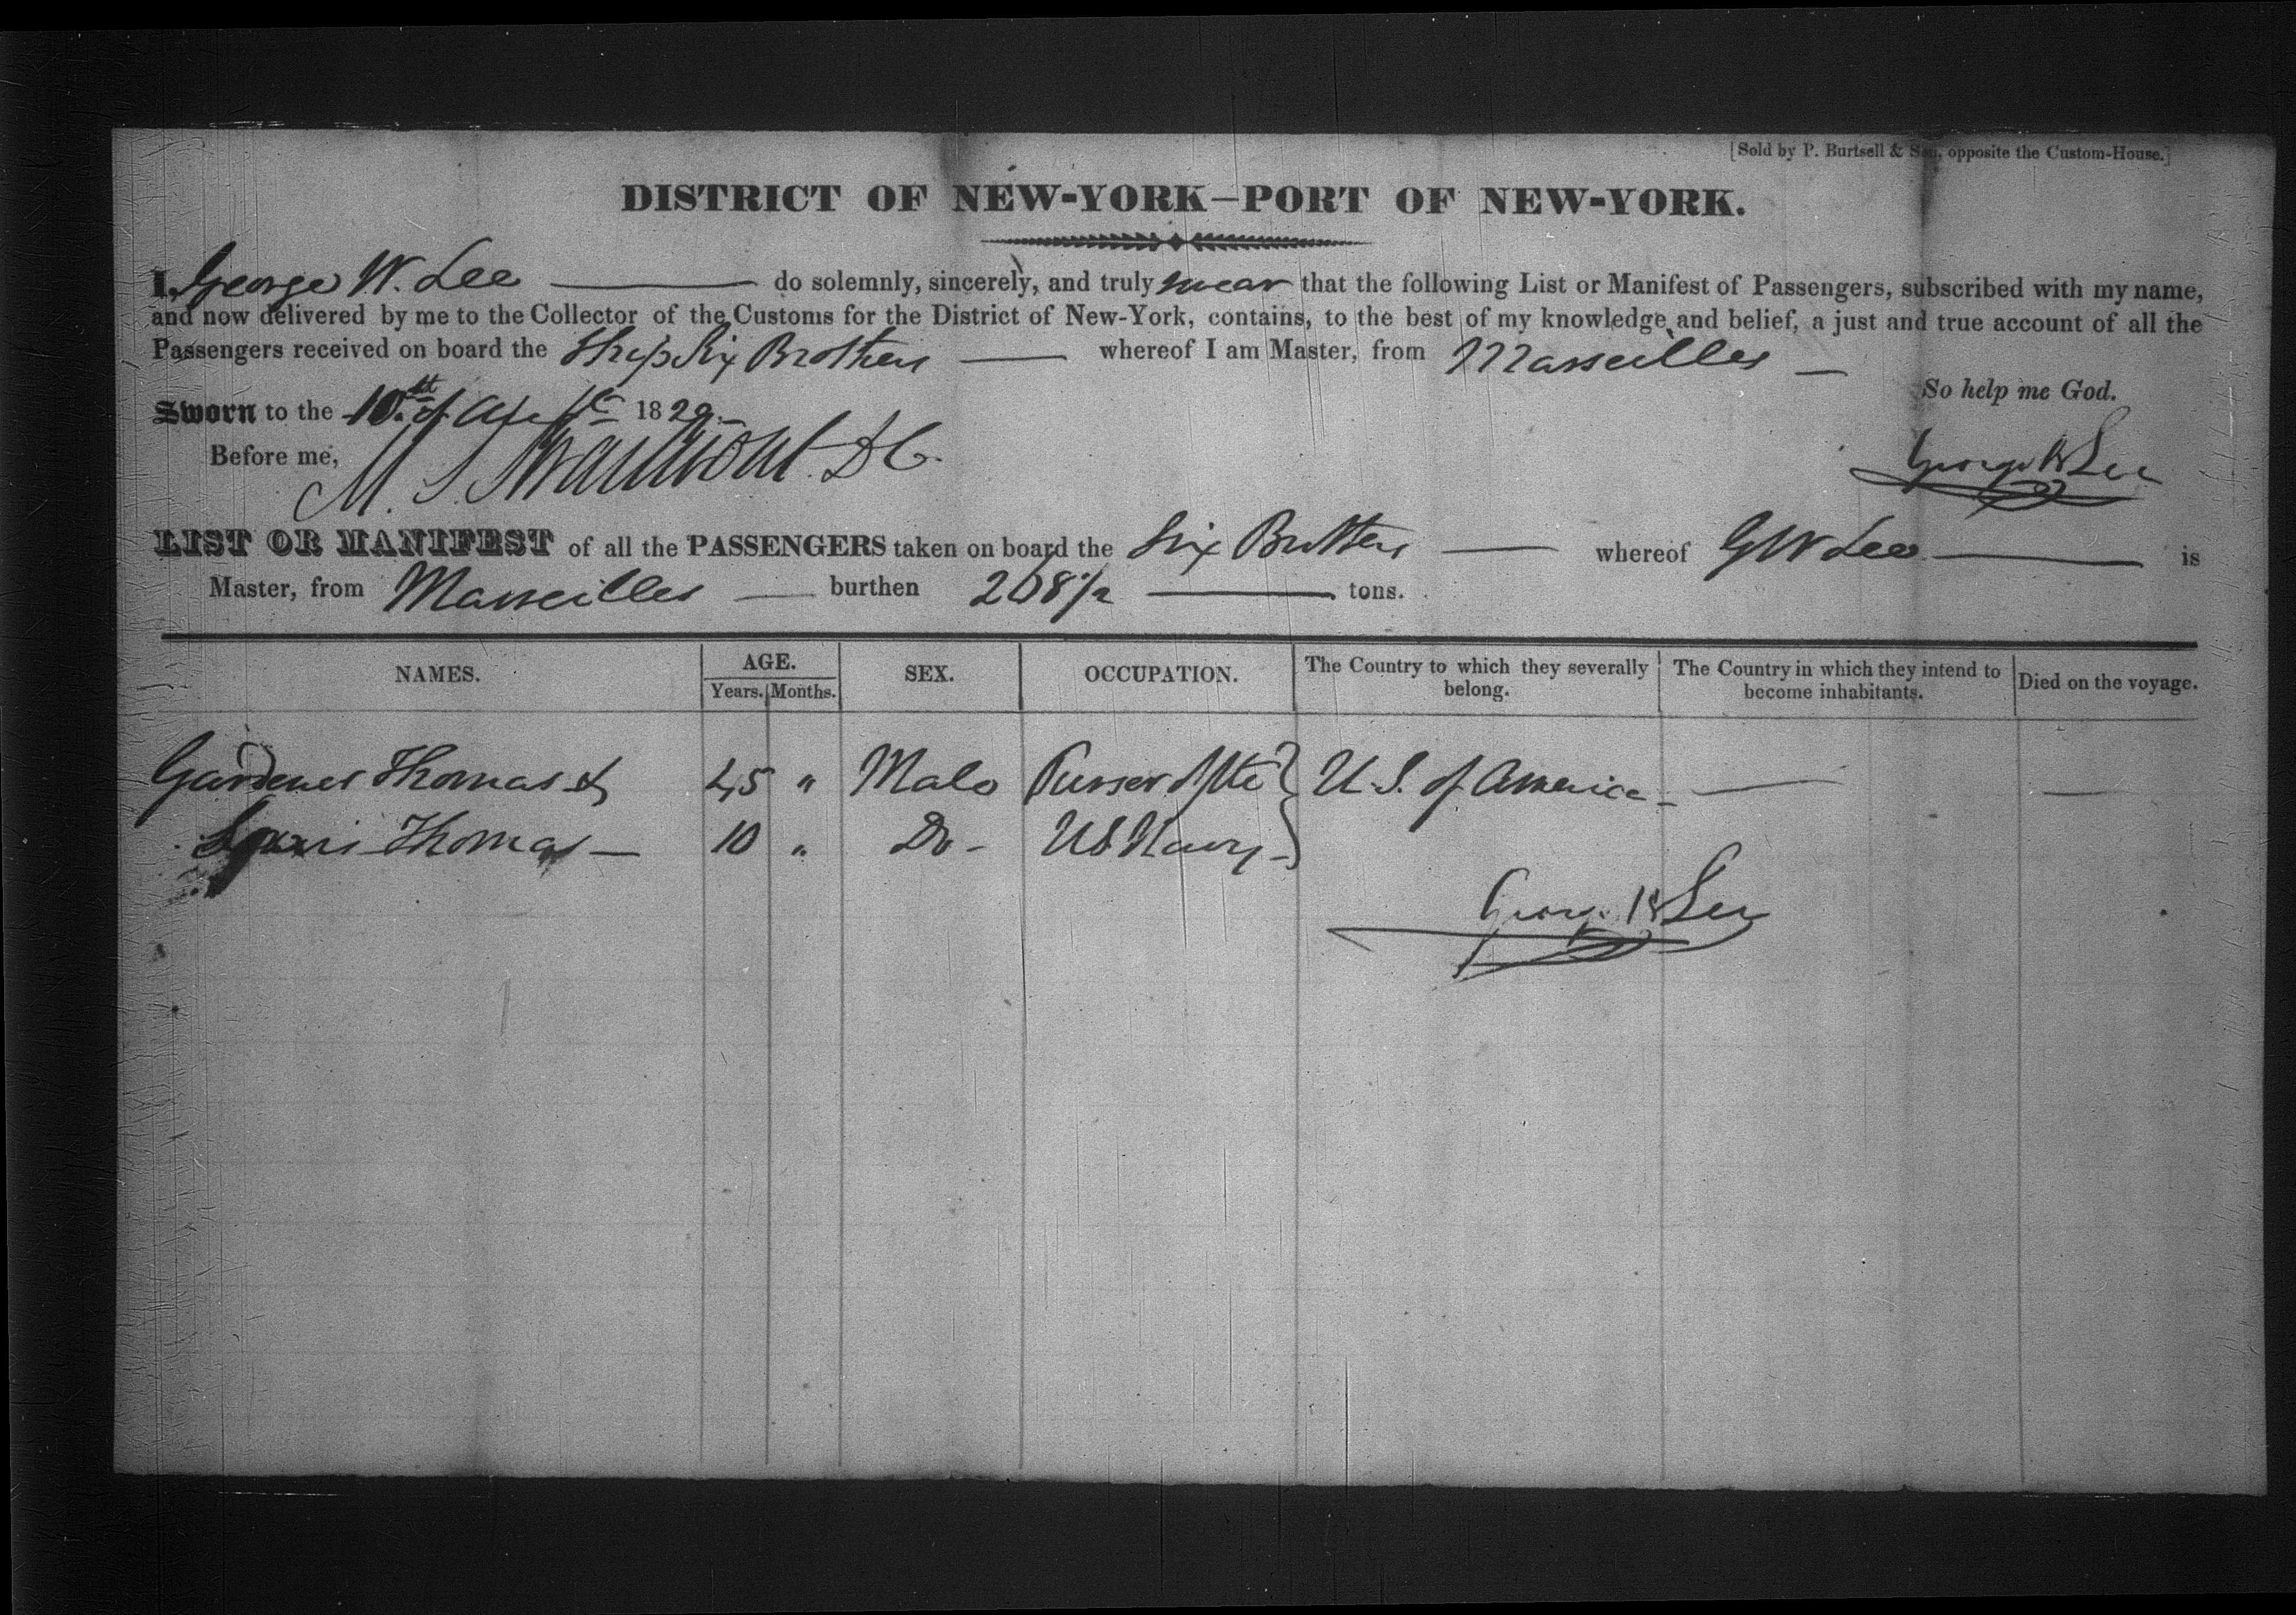 [Sold by P. Burtsell & Son, opposite the Custom-House.]
DISTRICT OF NEW-YORK—PORT OF NEW-YORK.
I, George W. Lee do solemnly, sincerely, and truly swear that the following List or Manifest of Passengers, subscribed with my name,
and now delivered by me to the Collector of the Customs for the District of New-York, contains, to the best of my knowledge and belief, a just and true account of all the
Passengers received on board the Ship Six Brothers whereof I am Master, from Marseilles
So help me God.
Sworn to the 10th of April 1829
Before me, M. S. D C.
George W Lee
LIST OR MANIFEST of all the PASSENGERS taken on board the Six Brothers whereof G W Lee is
Master, from Marseilles burthen 208 1/2 tons.
NAMES. AGE. SEX. OCCUPATION. The Country to which they severally belong. The Country in which they intend to become inhabitants. Died on the voyage.
Years. Months.
Gardener Thomas & 45 " Male Purser of the U. S. of America —  —
Thomas — 10 " Do - U S Navy
George W Lee